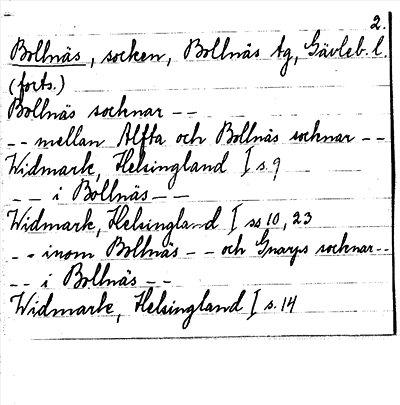 2.
Bollnäs, socken, Bollnäs tg, Gävleb. l.
(forts.)
Bollnäs socknar --
-- mellan Alfta och Bollnäs socknar --
Widmark, Helsingland I s. 9
-- i Bollnäs --
Widmark, Helsingland I ss 10, 23
-- inom Bollnäs -- och Gnarps socknar --
-- i Bollnäs --
Widmark, Helsingland I s. 14